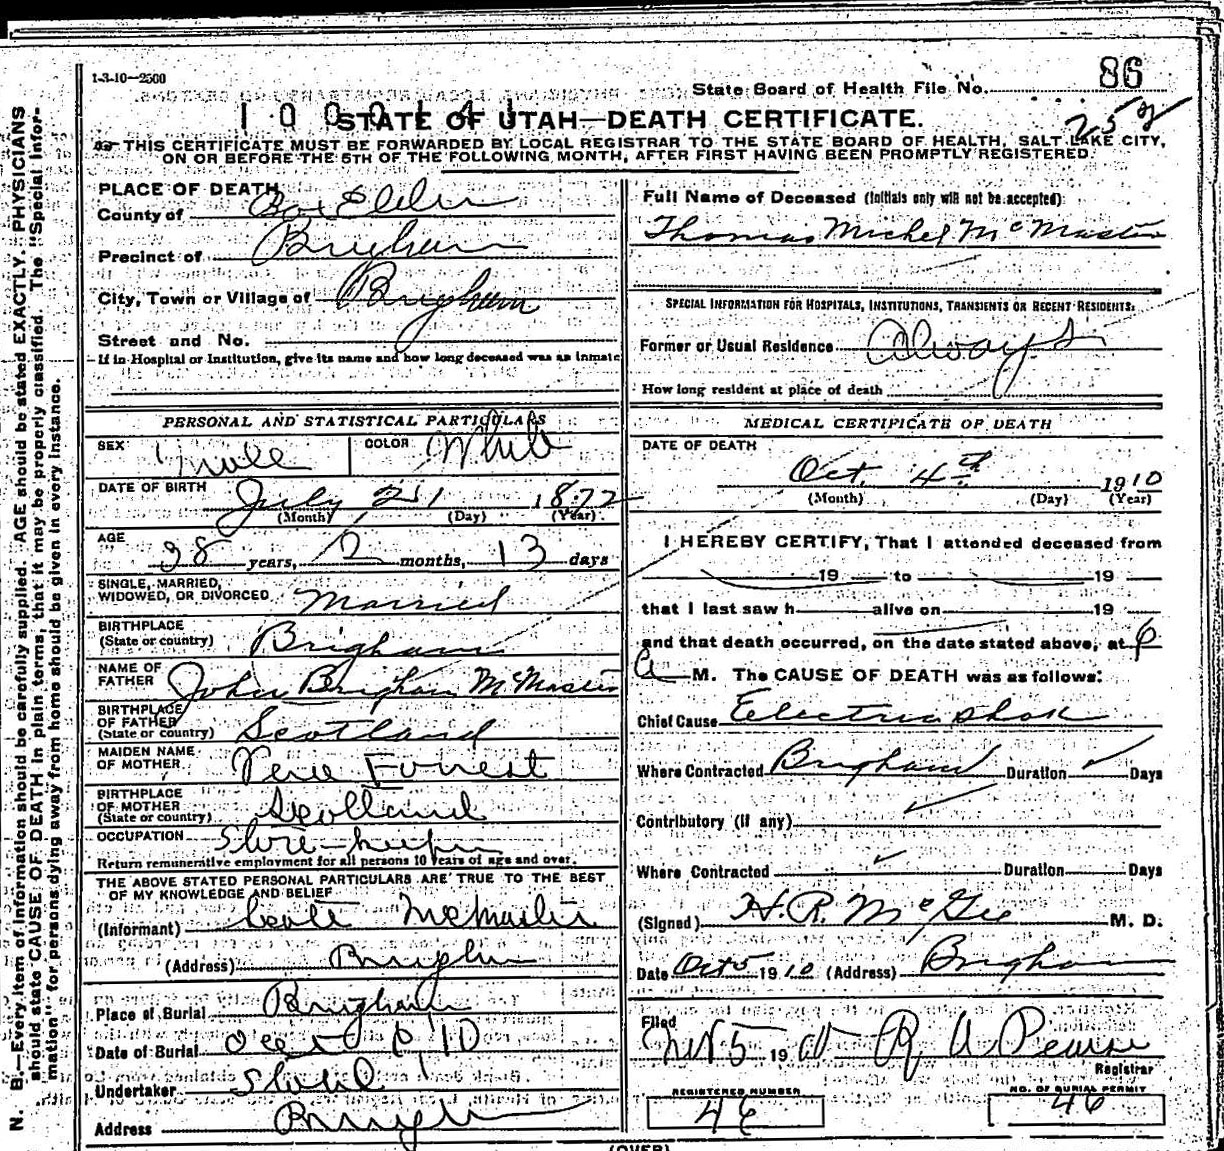 1-3-10—2500
State Board of Health File No. 86
1000141
25
STATE OF UTAH—DEATH CERTIFICATE.
THIS CERTIFICATE MUST BE FORWARDED BY LOCAL REGISTRAR TO THE STATE BOARD OF HEALTH, SALT LAKE CITY,
ON OR BEFORE THE 5TH OF THE FOLLOWING MONTH, AFTER FIRST HAVING BEEN PROMPTLY REGISTERED.
N. B.—Every item of information should be carefully supplied. AGE should be stated EXACTLY. PHYSICIANS
should state CAUSE OF DEATH in plain terms, that it may be properly classified. The "Special Infor-
mation" for persons dying away from home should be given in every instance.
PLACE OF DEATH
County of Box Elder
Precinct of Brigham
City, Town or Village of Brigham
Street and No.
If in Hospital or Institution, give its name and how long deceased was an inmate
PERSONAL AND STATISTICAL PARTICULARS
SEX Male COLOR White
DATE OF BIRTH July 21 1872
(Month) (Day) (Year)
AGE 38 years, 2 months, 13 days
SINGLE, MARRIED,
WIDOWED, OR DIVORCED Married
BIRTHPLACE
(State or country) Brigham
NAME OF
FATHER John Brigham McMaster
BIRTHPLACE
OF FATHER
(State or country) Scotland
MAIDEN NAME
OF MOTHER Forrest
BIRTHPLACE
OF MOTHER
(State or country) Scotland
OCCUPATION Store-keeper
Return remunerative employment for all persons 10 years of age and over.
THE ABOVE STATED PERSONAL PARTICULARS ARE TRUE TO THE BEST
OF MY KNOWLEDGE AND BELIEF
(Informant) McMaster
(Address) Brigham
Place of Burial Brigham
Date of Burial Oct 6, '10
Undertaker
Address Brigham
Full Name of Deceased (Initials only will not be accepted):
Thomas Michel McMaster
SPECIAL INFORMATION FOR HOSPITALS, INSTITUTIONS, TRANSIENTS OR RECENT RESIDENTS:
Former or Usual Residence Always
How long resident at place of death
MEDICAL CERTIFICATE OF DEATH
DATE OF DEATH
Oct. 4th 1910
(Month) (Day) (Year)
I HEREBY CERTIFY, That I attended deceased from
19 to 19
that I last saw h alive on 19
and that death occurred, on the date stated above, at 6
A M. The CAUSE OF DEATH was as follows:
Chief Cause Electric shok
Where Contracted Brigham Duration Days
Contributory (if any)
Where Contracted Duration Days
(Signed) H. R. McGee M. D.
Date Oct 5 1910 (Address) Brigham
Filed
5 19 R A Pearse
Registrar
REGISTERED NUMBER
46
NO. OF BURIAL PERMIT
46
(OVER)